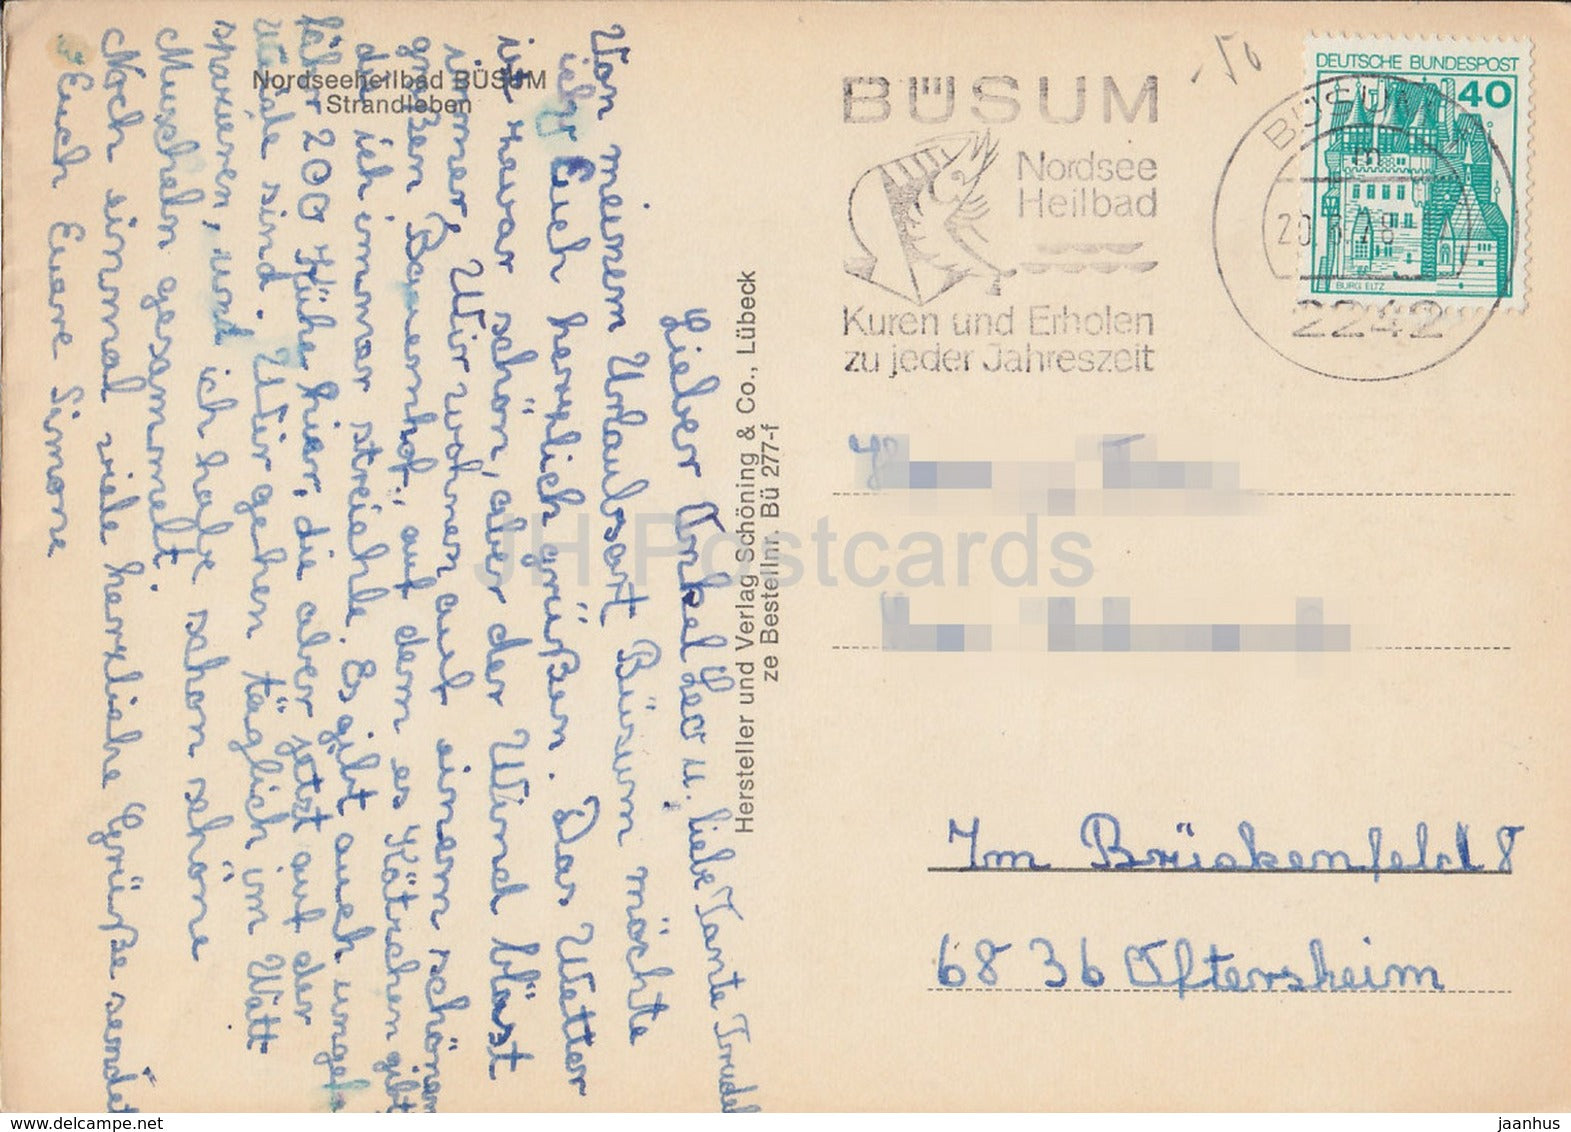 Nordseeheilbad BÜSUM
Strandleben
Lieber Onkel Leo u. liebe Tante Trudel
Von meinem Urlaubsort Büsum möchte
ich Euch herzlich grüßen. Das Wetter
ist zwar schön, aber der Wind bläst
immer. Wir wohnen auf einem schönen
großen Bauernhof, auf dem es Kätzchen gibt
die ich immer streichle. Es gibt auch ungef
fähr 200 Kühe hier, die aber jetzt auf der
Weide sind. Wir gehen täglich im Watt
spazieren, und ich habe schon schöne
Muscheln gesammelt.
Noch einmal viele herzliche Grüße sendet
Euch Eure Simone
Hersteller und Verlag Schöning & Co., Lübeck
ze Bestellnr. Bü 277-f
BÜSUM
Nordsee
Heilbad
Kuren und Erholen
zu jeder Jahreszeit
-50
DEUTSCHE BUNDESPOST
40
BURG ELTZ
BÜSUM
m
2242
Im Brückenfeld 8
6836 Oftersheim
JH Postcards
www.hippostcard.com
jaanhus